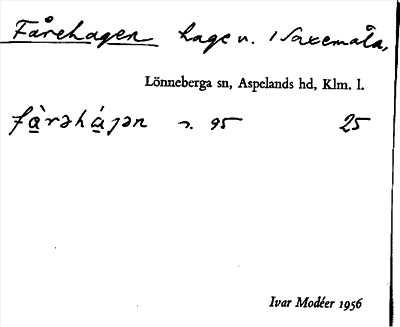 Fårehagen hage n. i Saxemåla,
Lönneberga sn, Aspelands hd, Klm. l.
fàrəhágən n. 95 25
Ivar Modéer 1956